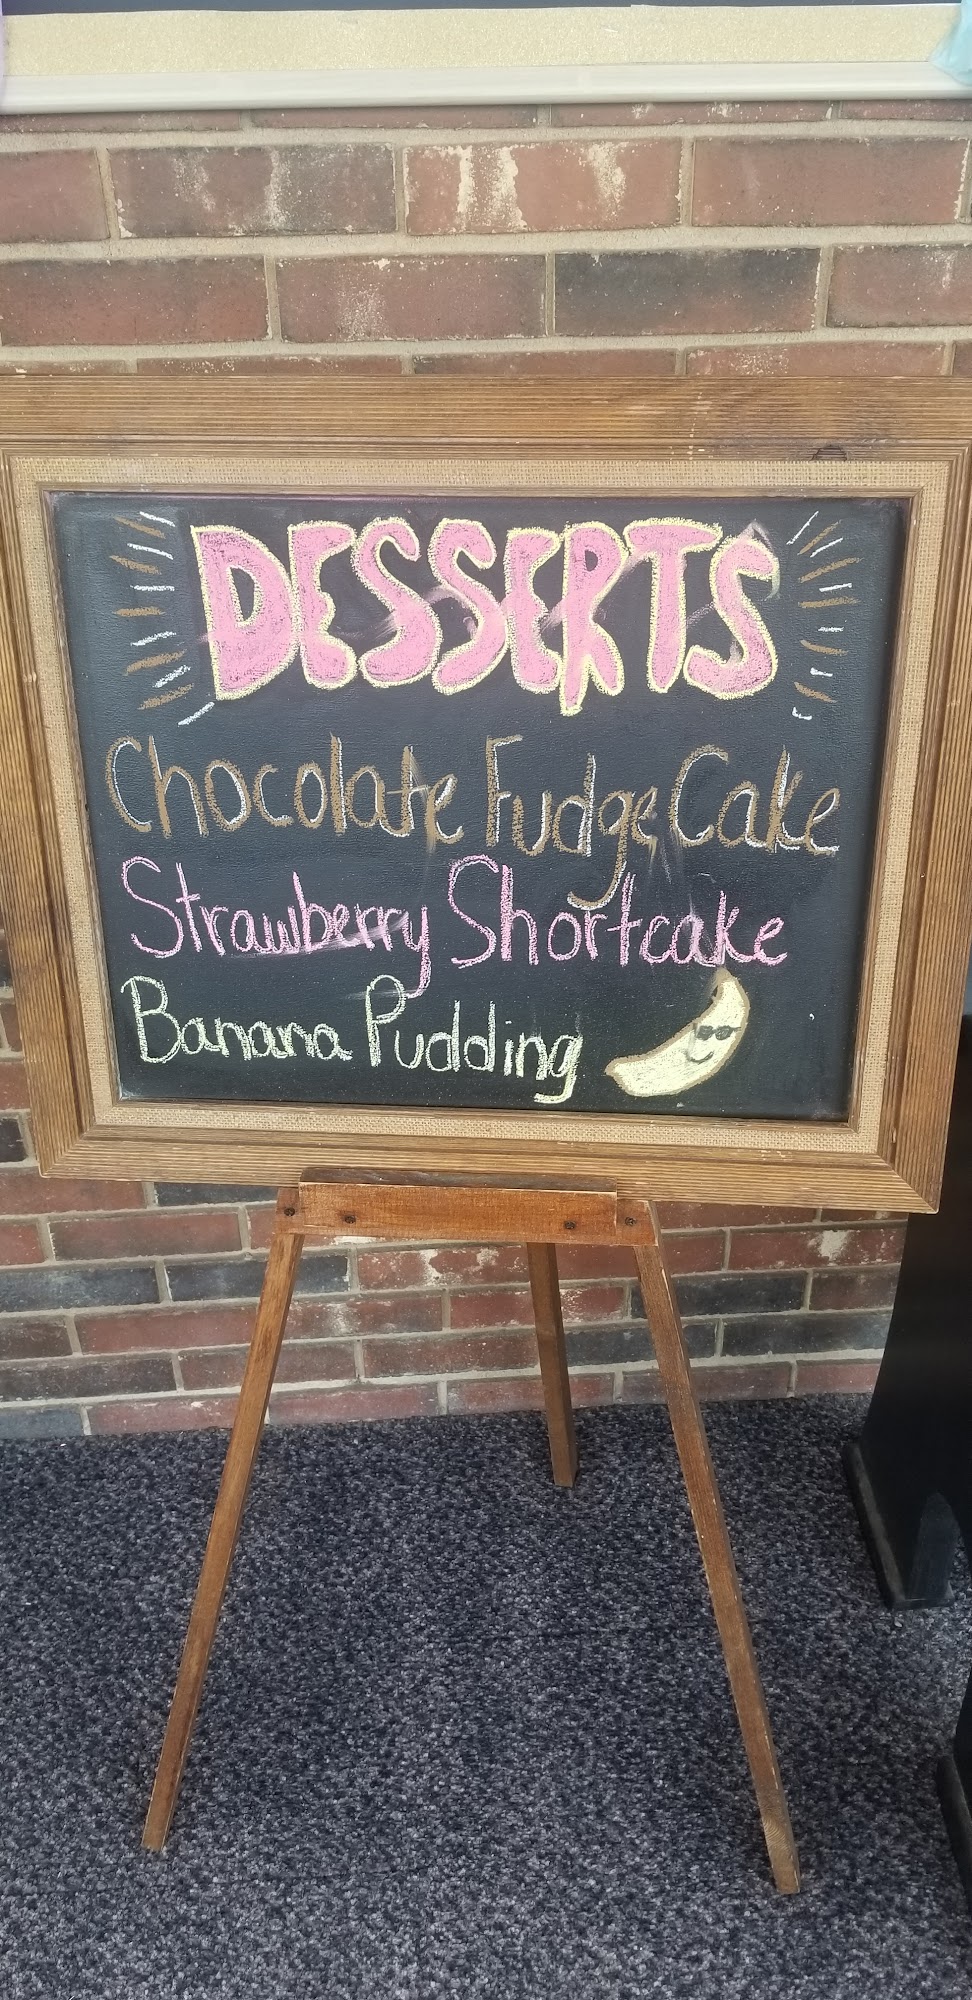 DESSERTS
Chocolate Fudge Cake
Strawberry Shortcake
Banana Pudding